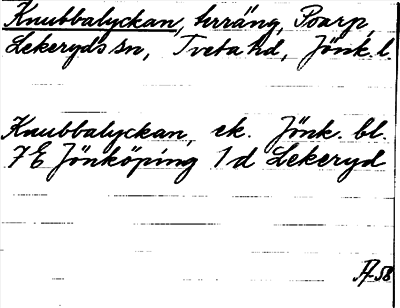 Knubbalyckan, hrräng, Poarp,
Lekeryds sn, Tveta hd, Jönk. l.
Knubbalyckan, ek. Jönk. bl.
7E Jönköping 1d Lekeryd